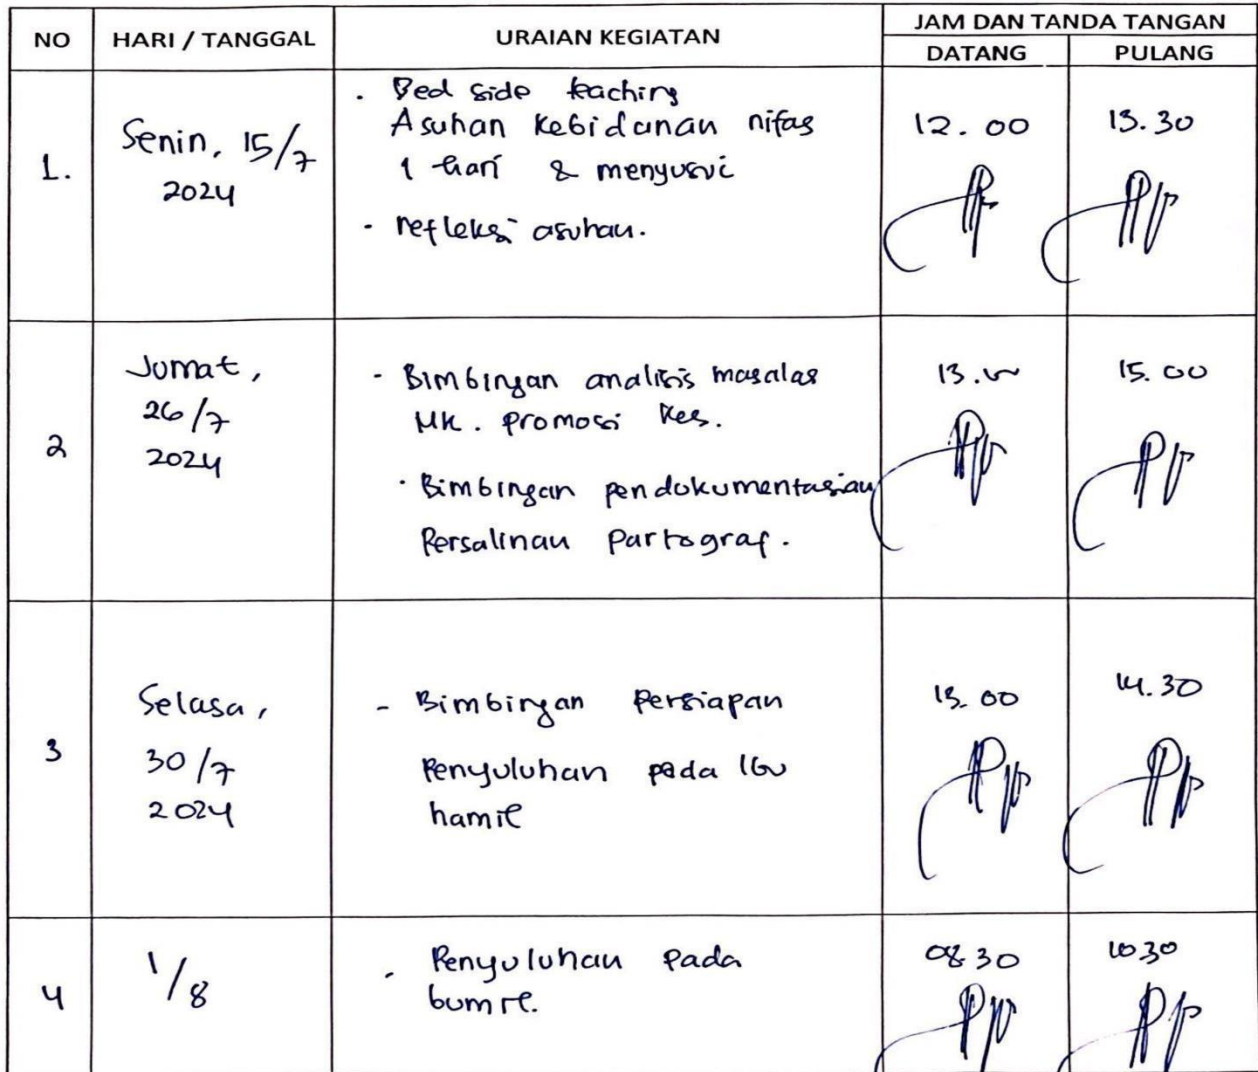 NO HARI / TANGGAL URAIAN KEGIATAN JAM DAN TANDA TANGAN
DATANG PULANG
1.
Senin, 15/7
2024
. Bed side teaching
Asuhan Kebidanan nifas
1 hari & menyusui
- refleksi asuhan.
12.00 13.30
2
Jumat,
26/7
2024
- Bimbingan analisis masalas
MK. promosi Kes.
- Bimbingan pendokumentasian
Persalinan Partograf.
13.00 15.00
3
Selasa,
30/7
2024
- Bimbingan Persiapan
Penyuluhan pada Ibu
hamil
13.00 14.30
4
1/8
- Penyuluhan pada
bumil.
08.30 10.30